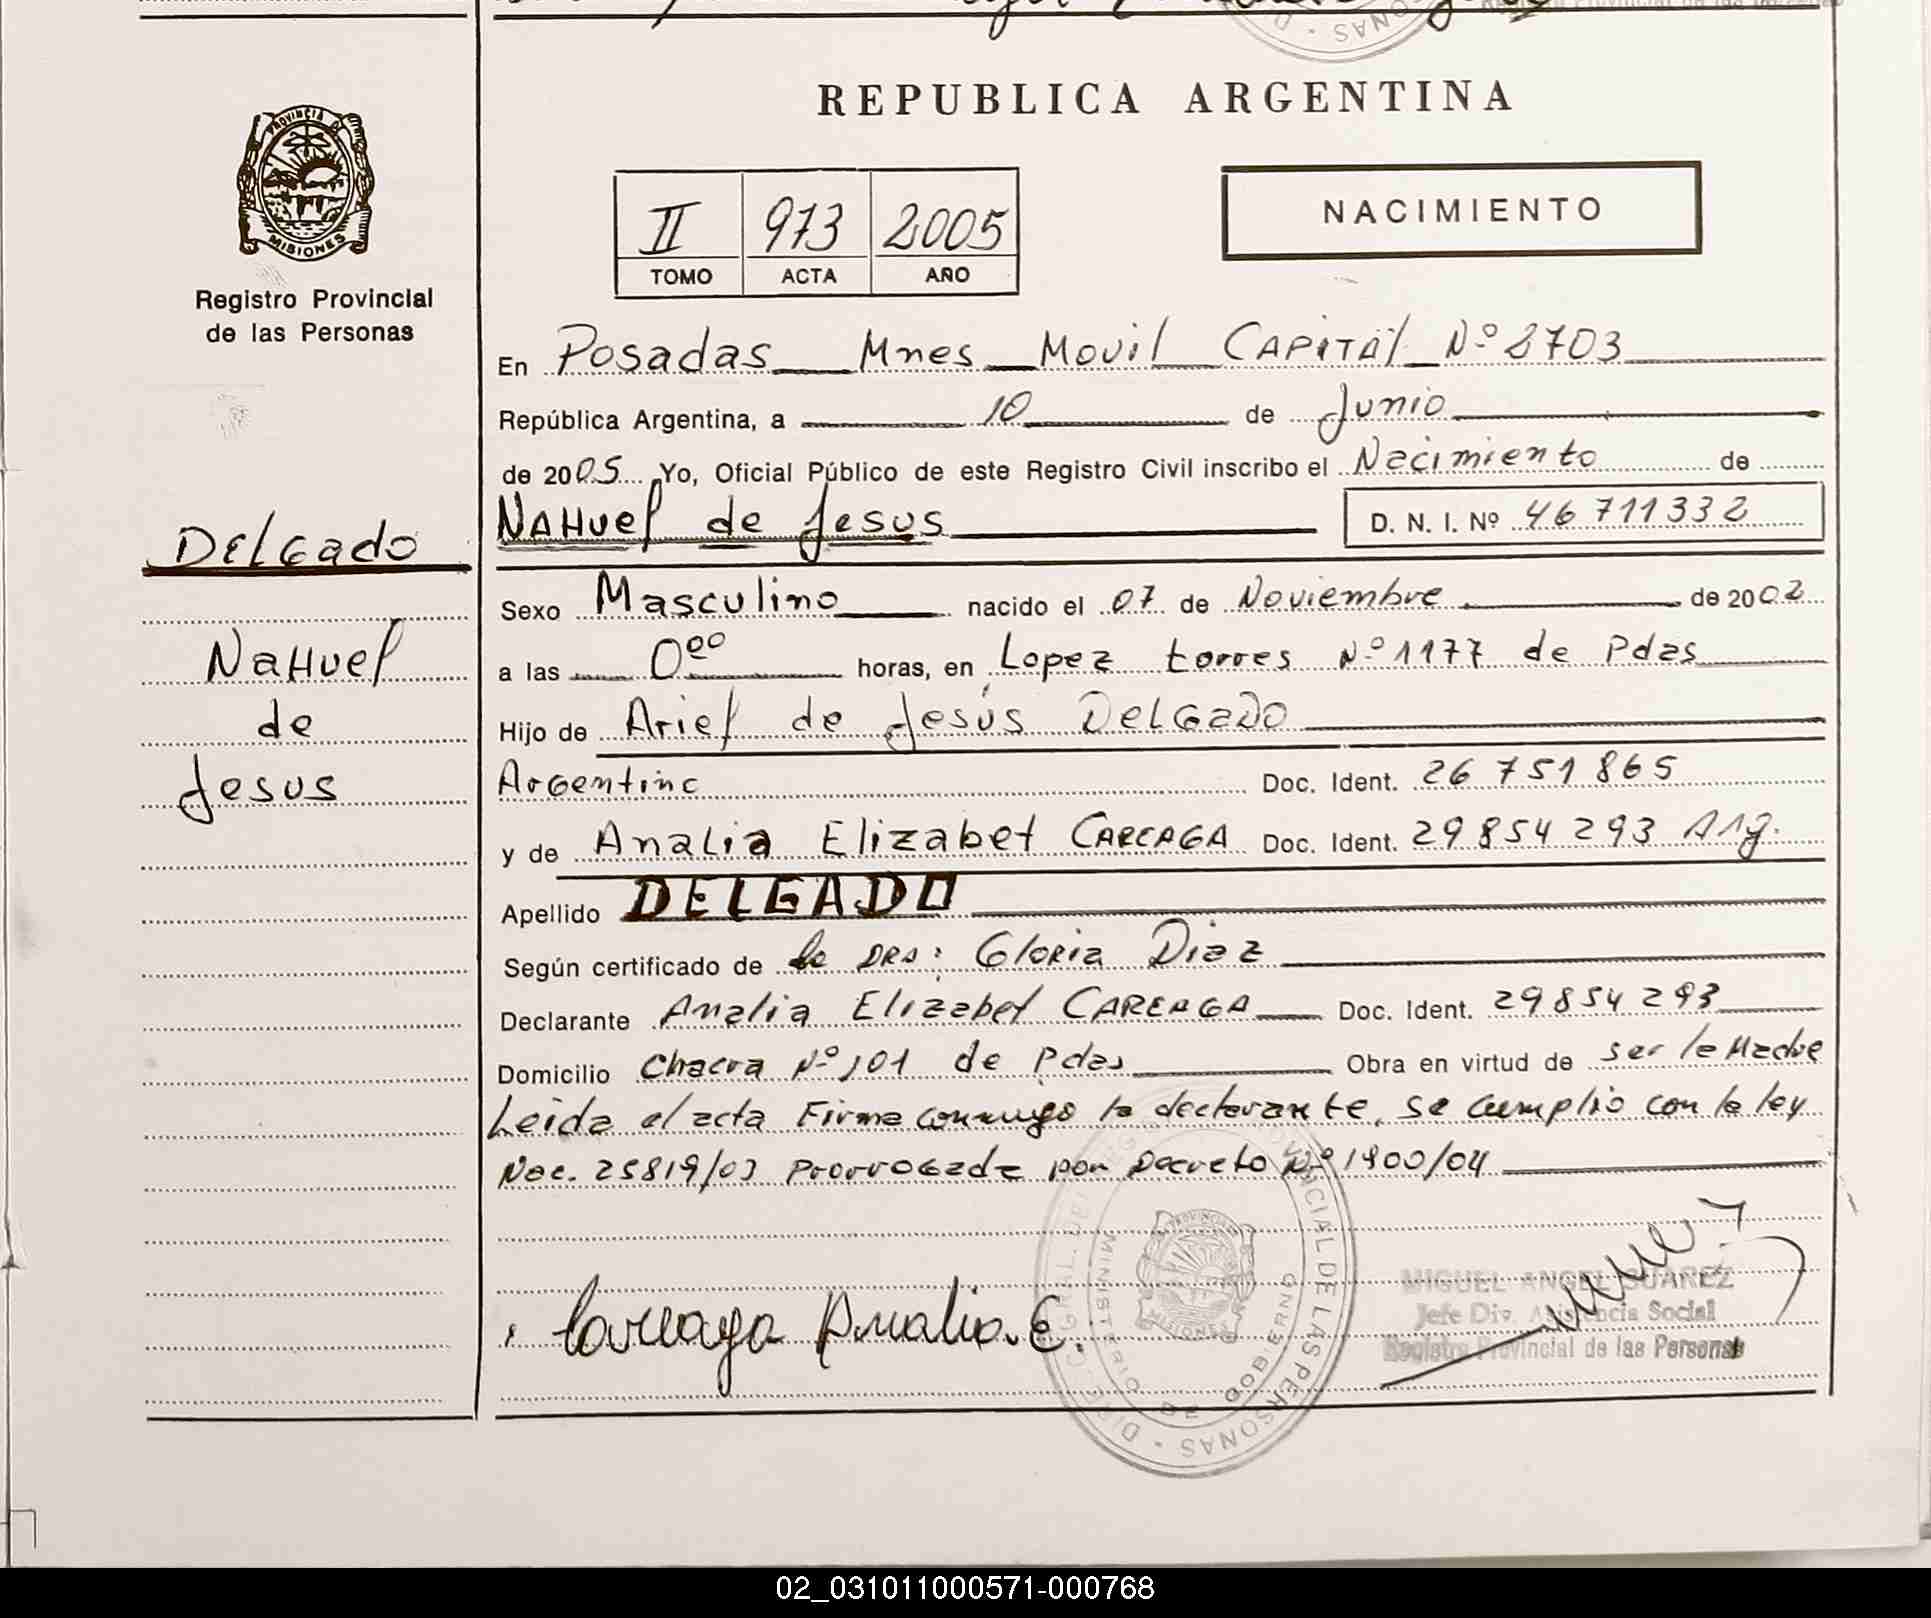 REPUBLICA ARGENTINA
PROVINCIA DE MISIONES
Registro Provincial
de las Personas
II 973 2005
TOMO ACTA AÑO
NACIMIENTO
En Posadas Mnes Movil CAPITAL Nº 2703
República Argentina, a 10 de Junio
de 2005 Yo, Oficial Público de este Registro Civil inscribo el Nacimiento de
NAHuel de Jesus D. N. I. Nº 46 711332
DElGado
NaHuel
de
Jesus
Sexo Masculino nacido el 07 de Noviembre de 2002
a las 0⁰⁰ horas, en Lopez torres Nº 1177 de Pdas
Hijo de Ariel de Jesús DElGADO
Argentino Doc. Ident. 26 751 865
y de Analia Elizabet CAREAGA Doc. Ident. 29 854 293 Arg.
Apellido DELGADO
Según certificado de la DRA: Gloria Diaz
Declarante Analia Elizabet CAREAGA Doc. Ident. 29 854 293
Domicilio Chacra Nº 101 de Pdas Obra en virtud de ser la Madre
Leida el acta Firma conmigo la declarante, se cumplio con la ley
Nac. 25819/03 Prorrogada por Decreto Nº 1900/04
Careaga Analia. E.
MIGUEL ANGEL SUAREZ
Jefe Div. Asistencia Social
Registro Provincial de las Personas
MINISTERIO DE GOBIERNO
02_031011000571-000768